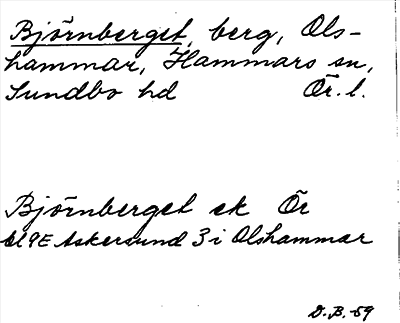 Björnberget, berg, Ols-
hammar, Hammars sn,
Sundbo hd Ör. l.
Björnberget ek Ör
bl 9E Askersund 3 i Olshammar
D.B. -59